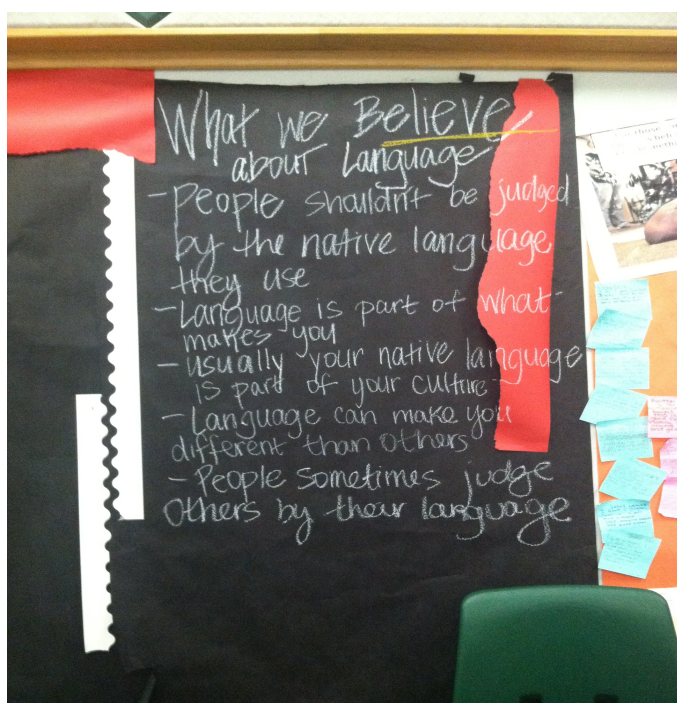 What we Believe
about Language
- People shouldn't be judged
by the native language
they use
- Language is part of what
makes you
- usually your native language
is part of your culture
- Language can make you
different than others
- People sometimes judge
others by their language